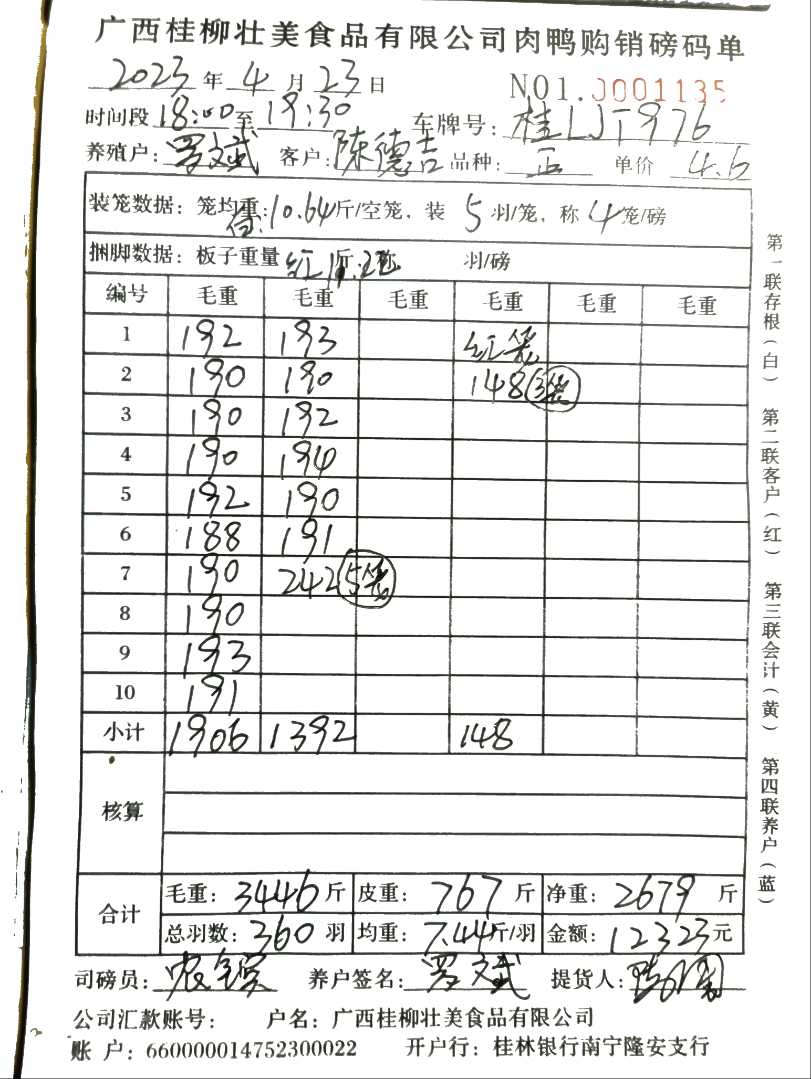 广西桂柳壮美食品有限公司肉鸭购销磅码单
2023 年 4 月 23 日 NO1.0001135
时间段 18:00 至 19:30 车牌号: 桂LJT976
养殖户: 罗文斌 客户: 陈德吉 品种: 正 单价 4.6
装笼数据: 笼均重: 白:10.64 斤/空笼, 装 5 羽/笼, 称 4 笼/磅
捆脚数据: 板子重量 红 羽/磅
编号 毛重 毛重 毛重 毛重 毛重 毛重
1 192 193 红笼
2 190 190 148 3笼
3 190 192
4 190 194
5 192 190
6 188 191
7 190 242 5笼
8 190
9 193
10 191
小计 1906 1392 148
核算
合计 毛重: 3446 斤 皮重: 767 斤 净重: 2679 斤
总羽数: 360 羽 均重: 7.44 斤/羽 金额: 12323 元
司磅员: 养户签名: 罗文斌 提货人:
公司汇款账号: 户名: 广西桂柳壮美食品有限公司
账 户: 660000014752300022 开户行: 桂林银行南宁隆安支行
第一联存根(白) 第二联客户(红) 第三联会计(黄) 第四联养户(蓝)